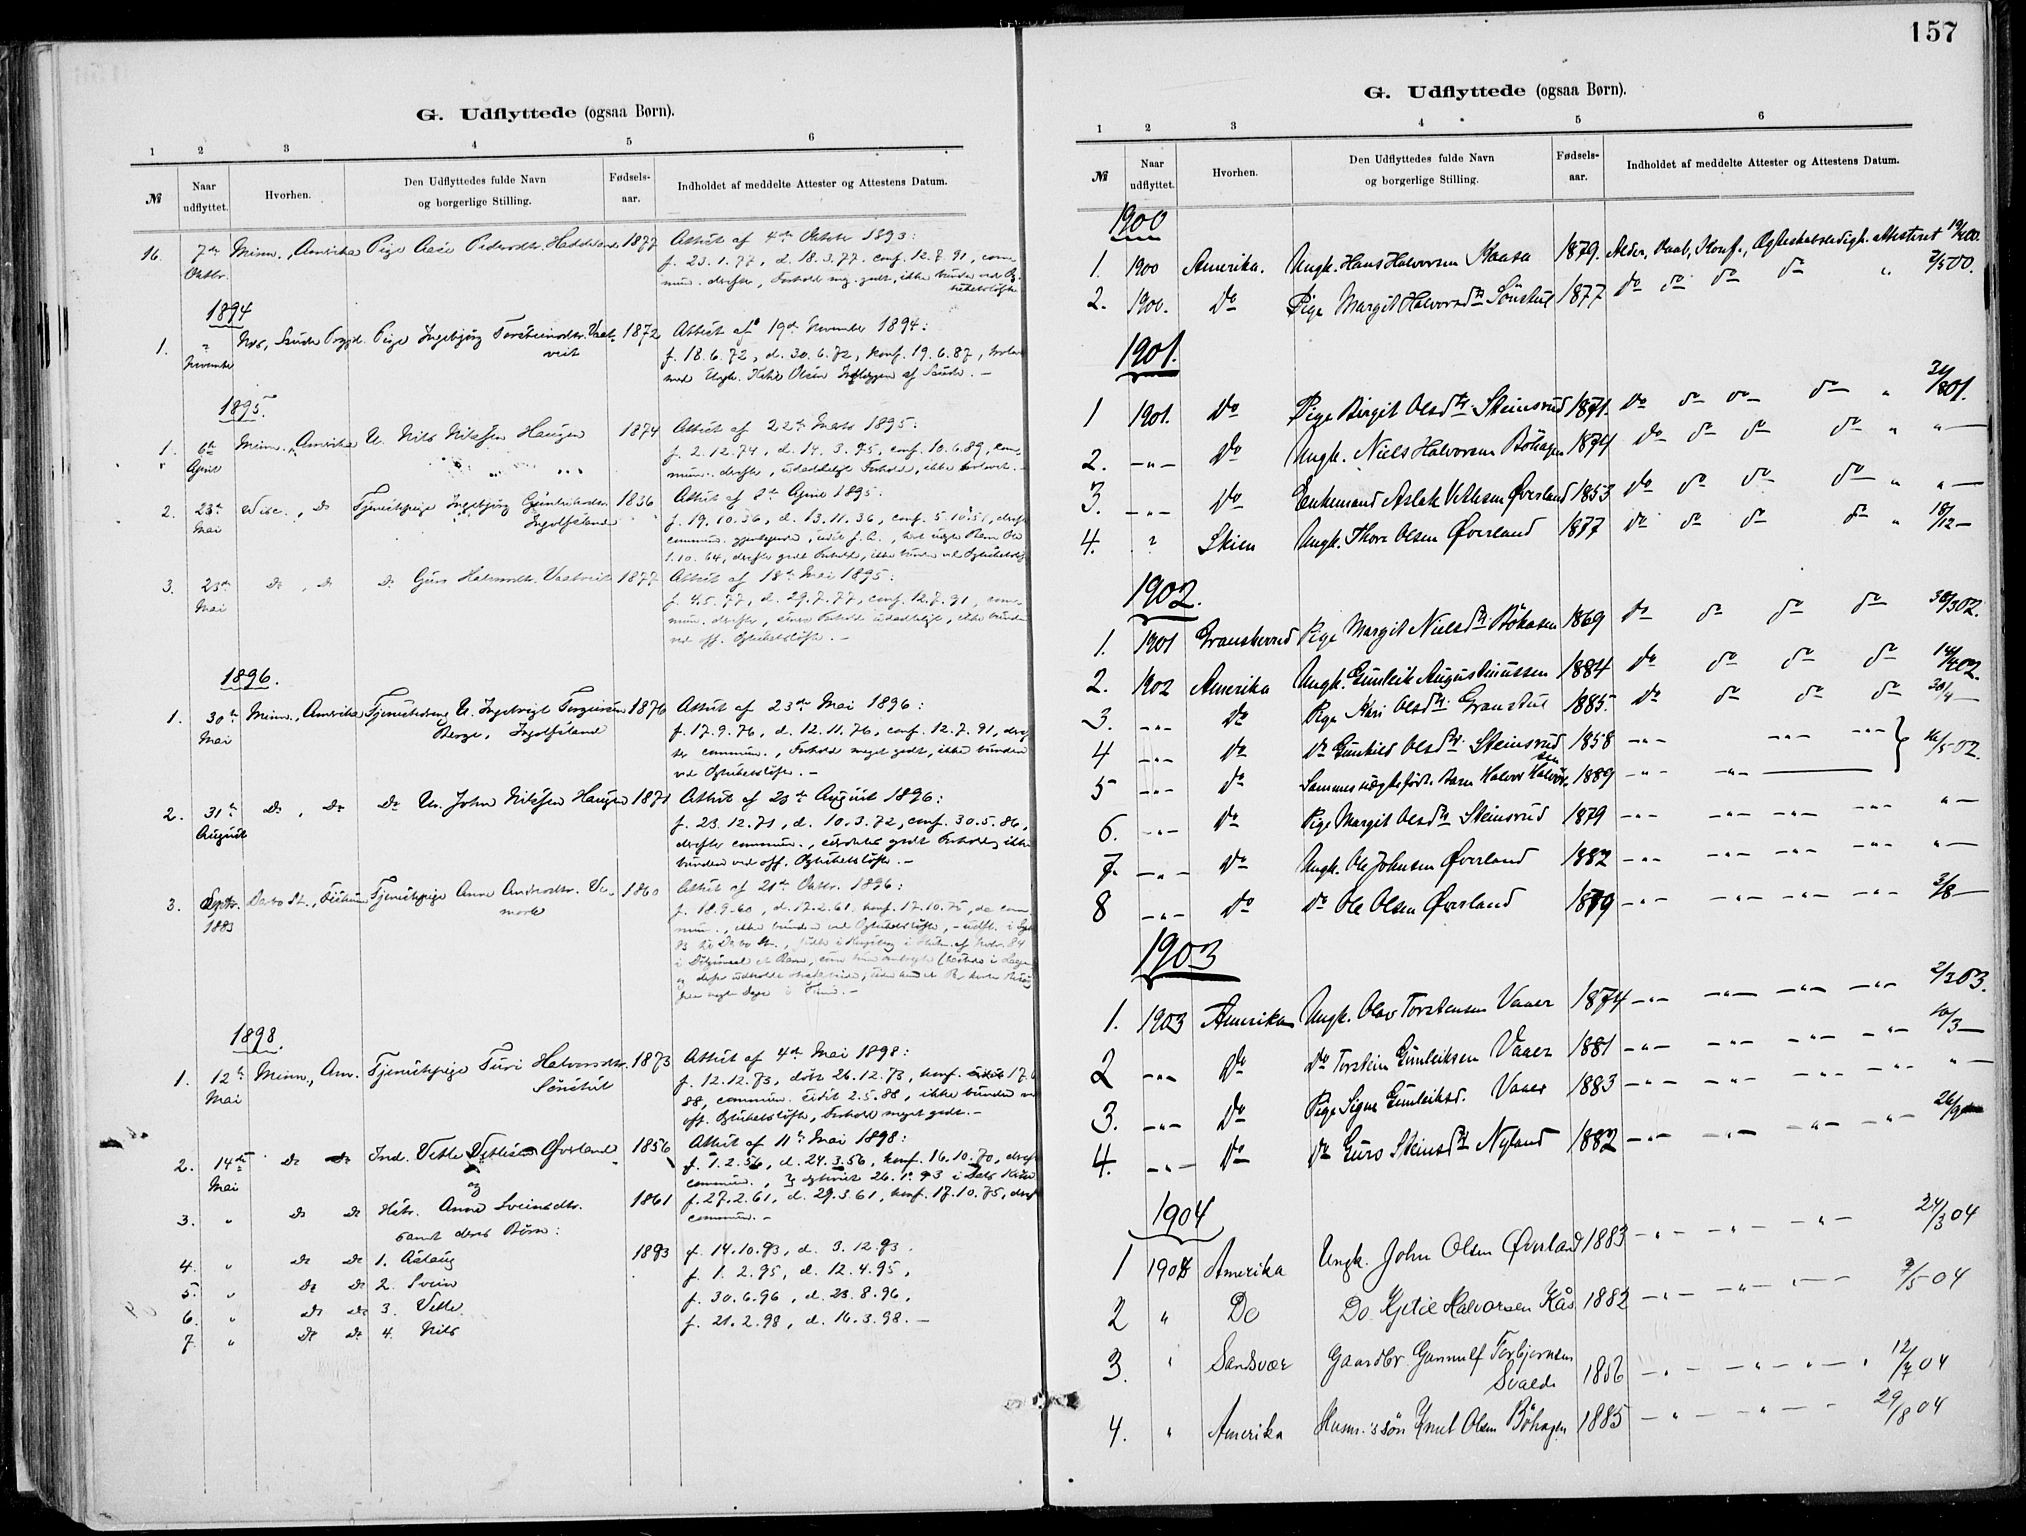 157
G. Udflyttede (ogsaa Børn).
1 2 3 4 5 6
№ Naar udflyttet. Hvorhen. Den Udflyttedes fulde Navn og borgerlige Stilling. Fødselsaar. Indholdet af meddelte Attester og Attestens Datum.
16. 7de Minn., Amerika Pige Aase Pedersdtr. Haddeland 1877 Attest af 4de Oktober 1893:
Oktbr. f. 23.1.77, d. 18.3.77. conf. 12.7.91, com-
mun. derefter, Forhold meg. godt, ikke bunden ved Æg-
teskabsløfte
1894
1. Pige Ingebjørg Torsteinsdtr. Vaat- 1872 Attest af 19de November 1894:
November veit f. 18.6.72, d. 30.6.72, konf. 19.6.87,
med Ungk. Ketil Olsen af Saude. —
1895.
1. 6te Minn., Amerika U. Nils Nilssen Haugen 1874 Attest af 22de Marts 1895:
April f. 2.12.74, d. 14.3.75, conf. 10.6.89, com-
mun. derefter, udadleligt Forhold, ikke forlovet. —
2. 23de Wisc., Do Tjenestepige Ingebjørg Gunleiksdtr. 1836 Attest af 8de April 1895:
Mai Ingolfsland f. 19.10.36, d. 13.11.36, conf. 5.10.51, derefter
commun.
1.10.64, derefter godt Forhold, ikke bunden ved Ægteskabsløfte
3. 23de Do, Do Do Guro Halvorsdtr. Vaatveit 1877 Attest af 18de Mai 1895:
Mai f. 4.5.77, d. 29.7.77, conf. 12.7.91, com-
mun. derefter, Forhold udadleligt, ikke bunden
ved off. Ægteskabsløfte. —
1896.
1. 30te Minn., Amerika Tjenestedreng U. Ingebrigt Torgeirsen 1876 Attest af 23de Mai 1896:
Mai Berge, Ingolfsland f. 17.9.76, d. 12.11.76, conf. 12.7.91, deref-
ter commun., Forhold meget godt, ikke bunden
ved Ægteskabsløfte. —
2. 31te Do, Do Do U. John Nilssen Haugen 1871 Attest af 23de August 1896:
August f. 23.12.71, d. 10.3.72, conf. 30.5.86,
derefter commun., særdeles godt Forhold, ikke
bunden ved off. Ægteskabsløfte. —
3. Septbr. Tjenestepige Anne Andersdtr. Ve- 1860 Attest af 21de Oktbr. 1896:
1883 mork f. 18.9.60, d. 17.2.61, konf. 17.10.75,
1898.
1. 12te Minn., Am. Tjenestepige Turi Halvorsdtr. 1873 Attest af 4de Mai 1898:
Mai Sønstul f. 12.12.73, døbt 26.12.73, konf. 17.6.
88, commun. sidst 2.5.88, ikke bunden ved
off. Ægteskabsløfte, Forhold meget godt. —
2. 14de Do Do Ind. Vetle Vetlesen Øverland 1856 Attest af 11te Mai 1898:
Mai og f. 1.2.56, d. 24.3.56, konf. 16.10.70, derefter
commun.,
3. " Do Do Hstr. Anne Sveinsdtr. 1861 f. 27.2.61, d. 29.3.61, konf. 17.10.75, derefter
samt deres Børn: commun. —
4. " Do Do 1. Aslaug 1893 f. 14.10.93, d. 3.12.93.
5. " Do Do 2. Svein f. 1.2.95, d. 12.4.95,
6. " Do Do 3. Vetle f. 30.6.96, d. 23.8.96,
7. " Do Do 4. Nils f. 21.2.98, d. 16.3.98. —
G. Udflyttede (ogsaa Børn).
1 2 3 4 5 6
№ Naar udflyttet. Hvorhen. Den Udflyttedes fulde Navn og borgerlige Stilling. Fødselsaar. Indholdet af meddelte Attester og Attestens Datum.
1900
1. 1900 Amerika. Ungk. Hans Halvorsen Kaasa 1879. Alder, Daab, Konf., Ægteskabsledigh. attesteret
2. 1900. Do Pige Margit Halvorsdtr Sönstul 1877 Do Do Do Do " 2/5 00.
1901.
1 1901. Do Pige Birgit Olsdtr. Steinsrud 1871. Do Do Do Do "
2. —"— Do Ungk. Niels Halvorsen Böhagen 1874 Do Do Do Do " " —
3. —"— Do Enkemand Aslak Vetlesen Øverland 1853 Do Do Do Do " " —
4. ? Skien Ungk. Thore Olsen Øverland 1877 Do Do Do Do " 18/12 —
1902.
1. 1901 Gransherred Pige Margit Nielsdtr Böhagen 1869 Do Do Do Do
2. 1902 Amerika Ungk. Gunleik Augustinussen 1884 Do Do Do Do 14/4 02.
3. —"— Do Pige Kari Olsdtr. Granstul 1885. Do Do Do Do 30/4 —
4 —"— Do Do Gunhild Olsdtr. Steinsrud 1858 —"— —"— —"— } 16/5 02.
5 —"— Do Sammes uægtefödte Barn Halvor Halvorsen 1889 —"— —"—
6. —"— Do Pige Margit Olsdtr Steinsrud 1879 —"— —"— —"— —"— " —
7. —"— Do Ungk. Ole Johnsen Øverland 1882 —"— —"— —"— —"— " —
8 —"— Do Do Ole Olsen Øverland 1879 —"— —"— —"— —"— 3/8 —
1903
1. 1903 Amerika Ungk. Olav Torstensen Vaaer 1874 —"— —"— —"— —"— 2/3 03.
2 —"— Do Do Torstein Gunleiksen Vaaer 1881 —"— —"— —"— —"— 10/3 —
3. —"— Do Pige Signe Gunleiksd. Vaaer 1883 —"— —"— —"— —"— " —
4. —"— Do Do Guro Steinsdtr Nyland 1882 —"— —"— —"— —"— 26/9
1904
1 1904 Amerika Ungk. John Olsen Øverland 1883 —"— —"— —"— 24/3 04
2 " Do Do Kjetil Halvorsen Kås 1882 —"— —"— —"— 7/5 04
3. " Sandsvær Gaardbr. Gunnulf Torbjørnsen
Svalde 1856 —"— —"— —"— 12/7 04
4. " Amerika Husm.'s sön Knut Olsen Böhagen 1885 —"— —"— —"— 29/8 04